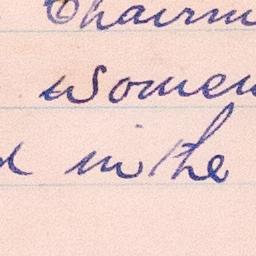 Chairm
women
in the